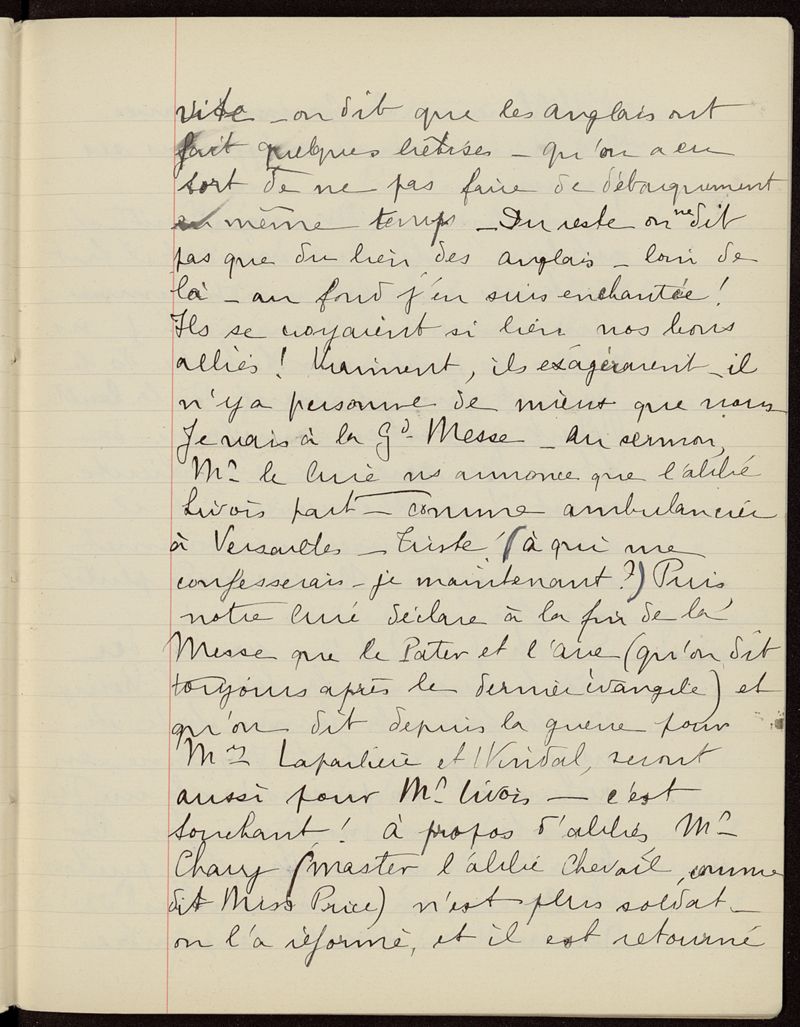 vite – on dit que les anglais ont
fait quelques bêtises – qu'on a eu
tort de ne pas faire de débarquement
en même temps – Du reste on ne dit
pas que du bien des anglais – loin de
là – au fond j'en suis enchantée !
Ils se croyaient si bien nos bons
alliés ! Vraiment, ils exagéraient – il
n'y a personne de mieux que nous
Je vais à la Gd- Messe – Au sermon,
Mr le Curé ns annonce que l'abbé
Livois part – comme ambulancier
à Versailles – Triste ! (à qui me
confesserais-je maintenant ?) Puis,
notre Curé déclare à la fin de la
Messe que le Pater et l'Ave (qu'on dit
toujours après le dernier évangile) et
qu'on dit depuis la guerre pour
Mrs et , seront
aussi pour Mr Livois – c'est
touchant ! À propos d'abbés Mr
(master l'abbé Chevail, comme
dit Miss Price) n'est plus soldat –
on l'a réformé, et il est retourné